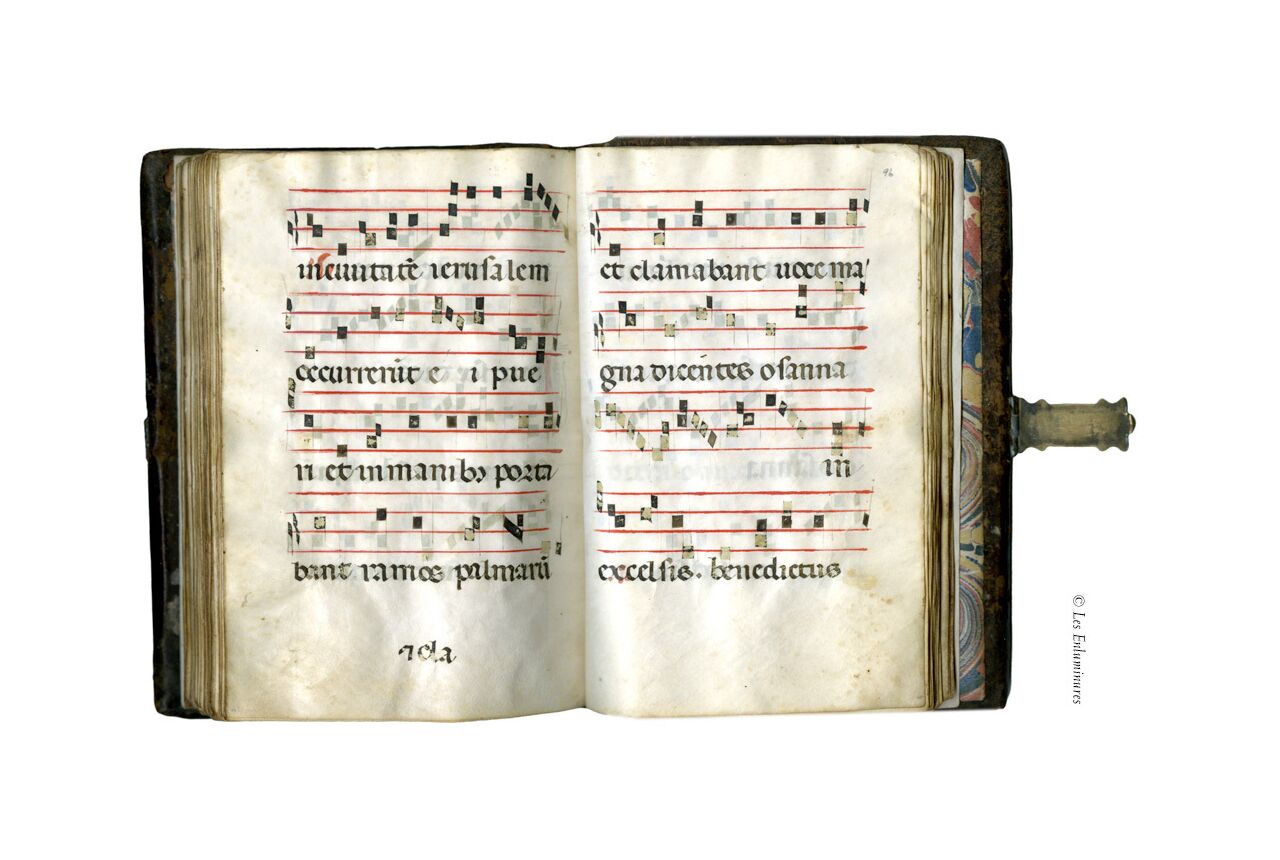 in ciuitatē ierusalem
occurrerūt e i pue
ri et in manibꝫ porta
bant ramos palmarū
⁊ cla
96
et clamabant uoce ma
gna dicentes osanna
in
excelsis. benedictus
© Les Enluminures